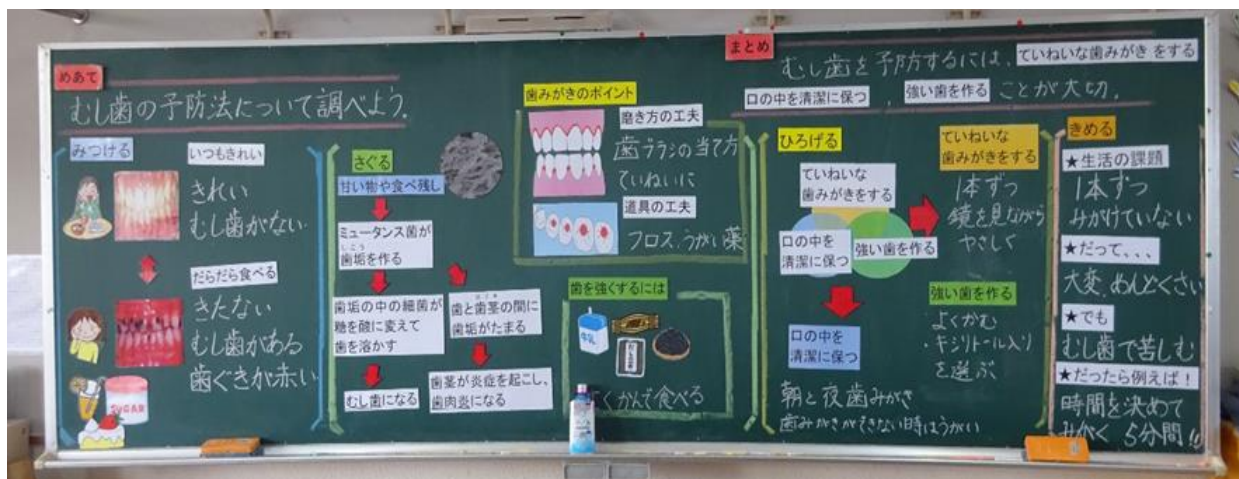 めあて
むし歯の予防法について調べよう。
みつける
いつもきれい
きれい
むし歯がない
だらだら食べる
きたない
むし歯がある
歯ぐきが赤い
SUGAR
さぐる
甘い物や食べ残し
ミュータンス菌が
しこう
歯垢を作る
歯垢の中の細菌が
糖を酸に変えて
歯を溶かす
むし歯になる
はぐき
歯と歯茎の間に
歯垢がたまる
歯茎が炎症を起こし、
歯肉炎になる
歯みがきのポイント
磨き方の工夫
歯ブラシの当て方
ていねいに
道具の工夫
フロス、うがい薬
歯を強くするには
牛乳
よくかんで食べる
まとめ
むし歯を予防するには、ていねいな歯みがきをする
口の中を清潔に保つ、強い歯を作ることが大切。
ひろげる
ていねいな
歯みがきをする
口の中を
清潔に保つ
強い歯を作る
ていねいな
歯みがきをする
1本ずつ
鏡を見ながら
やさしく
強い歯を作る
よくかむ
・キシリトール入り
を選ぶ
口の中を
清潔に保つ
朝と夜歯みがき
歯みがきができない時はうがい
きめる
★生活の課題
1本ずつ
みがけていない
★だって、、、
大変、めんどくさい
★でも
むし歯で苦しむ
★だったら例えば!
時間を決めて
みがく 5分間!!